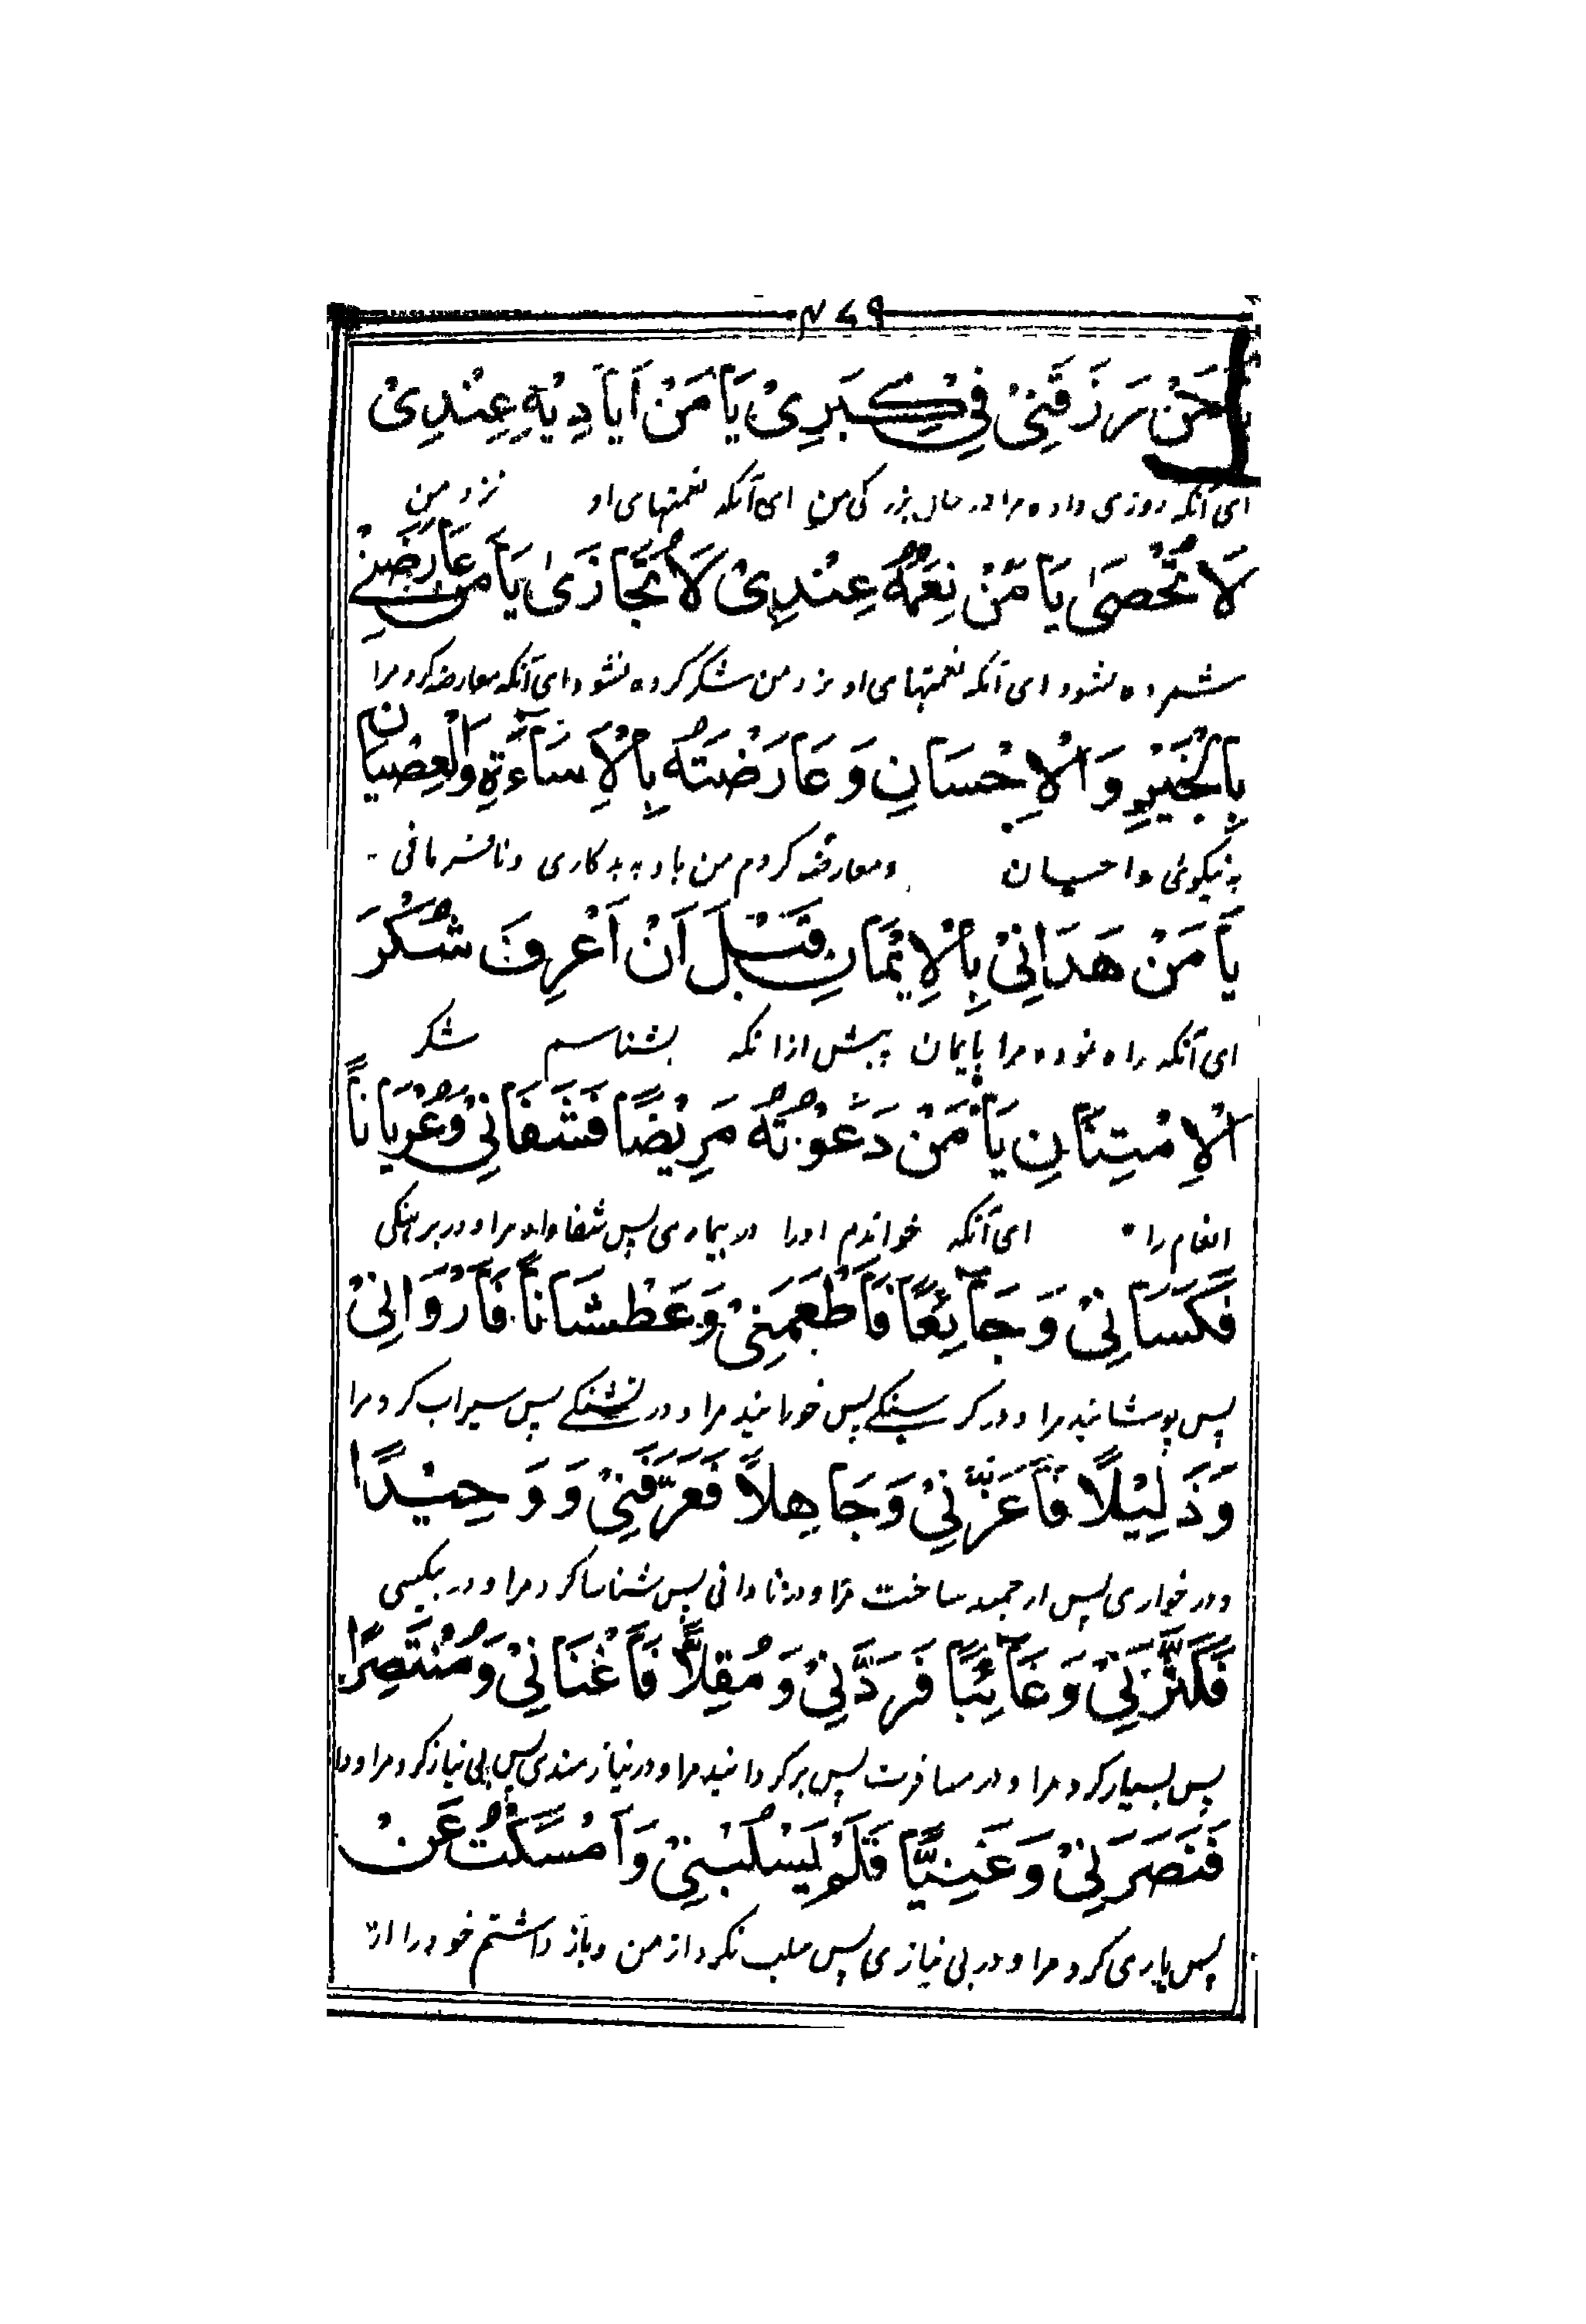 ۴۷۹
يَا مَنْ رَزَقَنِيْ فِيْ كِبَرِيْ يَا مَنْ اَيَادِيْهِ عِنْدِيْ
ای آنکه روزی داده مرا در حال بزرگی من ای آنکه نعمتهای او نزد من
لَا تُحْصىٰ يَا مَنْ نِعَمُهُ عِنْدِيْ لَا تُجَازَىٰ يَا مَنْ عَارَضَنِيْ
شمرده نشود ای آنکه نعمتهای او نزد من شکر کرده نشود ای آنکه معارضه کرد مرا
بِالْخَيْرِ وَالْاِحْسَانِ وَعَارَضْتُهُ بِالْاِسَاۤءَةِ وَالْعِصْيَانِ
به نیکوئی و احسان و معارضه کردم من باو به بدکاری و نافرمانی -
يَا مَنْ هَدَانِيْ بِالْاِيْمَانِ قَبْلَ اَنْ اَعْرِفَ شُكْرَ
ای آنکه راه نموده مرا بایمان پیش ازانکه بشناسم شکر
الْاِمْتِنَانِ يَا مَنْ دَعَوْتُهُ مَرِيْضًا فَشَفَانِيْ وَعُرْيَانًا
انعام را ای آنکه خواندم اورا در بیماری پس شفا داد مرا و در برهنگی
فَكَسَانِيْ وَجَاۤئِعًا فَاَطْعَمَنِيْ وَعَطْشَانًا فَاَرْوَانِيْ
پس پوشانید مرا و در گرسنگے پس خورانید مرا و در تشنگے پس سیراب کرد مرا
وَذَلِيْلًا فَاَعَزَّنِيْ وَجَاهِلًا فَعَرَّفَنِيْ وَوَحِيْدًا
و در خواری پس ارجمند ساخت مرا و در نادانی پس شناسا کرد مرا و در بیکسی
فَكَثَّرَنِيْ وَغَاۤئِبًا فَرَدَّنِيْ وَمُقِلًّا فَاَغْنَانِيْ وَمُنْتَصِرًا
پس بسیار کرد مرا و در مسافرت پس برگردانید مرا و در نیازمندی پس بی نیاز کرد مرا و در
فَنَصَرَنِيْ وَغَنِيًّا فَلَمْ يَسْلُبْنِيْ وَاَمْسَكْتُ عَنْ
پس یاری کرد مرا و در بی نیازی پس سلب نکرد از من و باز داشتم خود را از